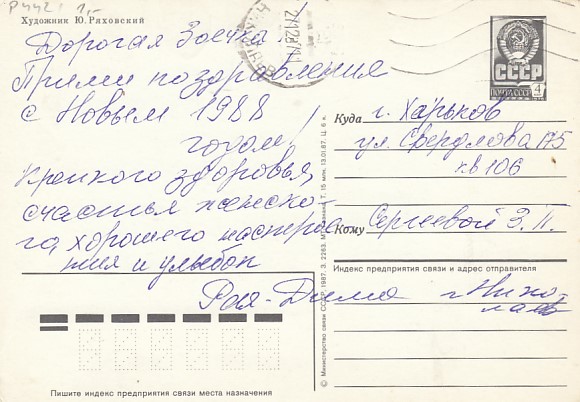 Р442 1,-
Художник Ю. Ряховский
Дорогая Зоечка!
Прими поздравления
с Новым 1988
годом!
Крепкого здоровья,
счастья женско
го, хорошего настрое
ния и улыбок
Рая-Дима
СССР
ПОЧТА СССР
4
Куда г. Харьков
ул. Свердлова 175
кв 106
Кому Сергеевой З. П.
Индекс предприятия связи и адрес отправителя
г. Нико
лаев
Пишите индекс предприятия связи места назначения
© Министерство связи СССР, 1987. З. 2263. 15 млн. 13.01.87. Ц. 6 к.